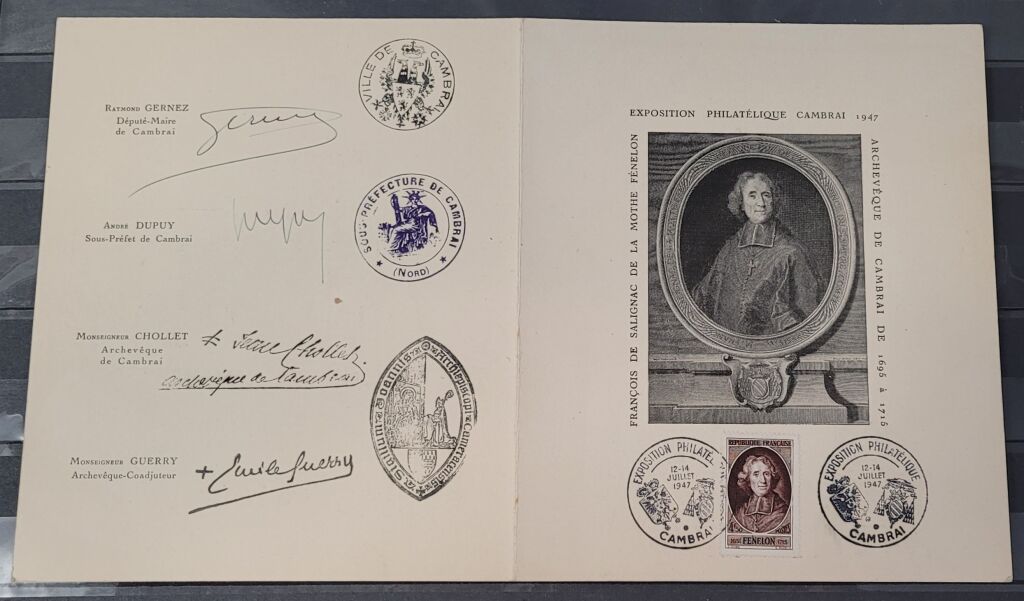 RAYMOND GERNEZ
Député-Maire
de Cambrai
Gernez
VILLE DE CAMBRAI
ANDRÉ DUPUY
Sous-Préfet de Cambrai
Dupuy
SOUS-PRÉFECTURE DE CAMBRAI
(NORD)
MONSEIGNEUR CHOLLET
Archevêque
de Cambrai
+ Jean Chollet
archevêque de Cambrai
MONSEIGNEUR GUERRY
Archevêque-Coadjuteur
+ Emile Guerry
EXPOSITION PHILATÉLIQUE CAMBRAI 1947
FRANÇOIS DE SALIGNAC DE LA MOTHE FÉNELON
ARCHEVÊQUE DE CAMBRAI DE 1695 à 1715
EXPOSITION PHILATÉL
12-14
JUILLET
1947
CAMBRAI
REPUBLIQUE FRANÇAISE
FENELON
1715
EXPOSITION PHILATÉLIQUE
12-14
JUILLET
1947
CAMBRAI